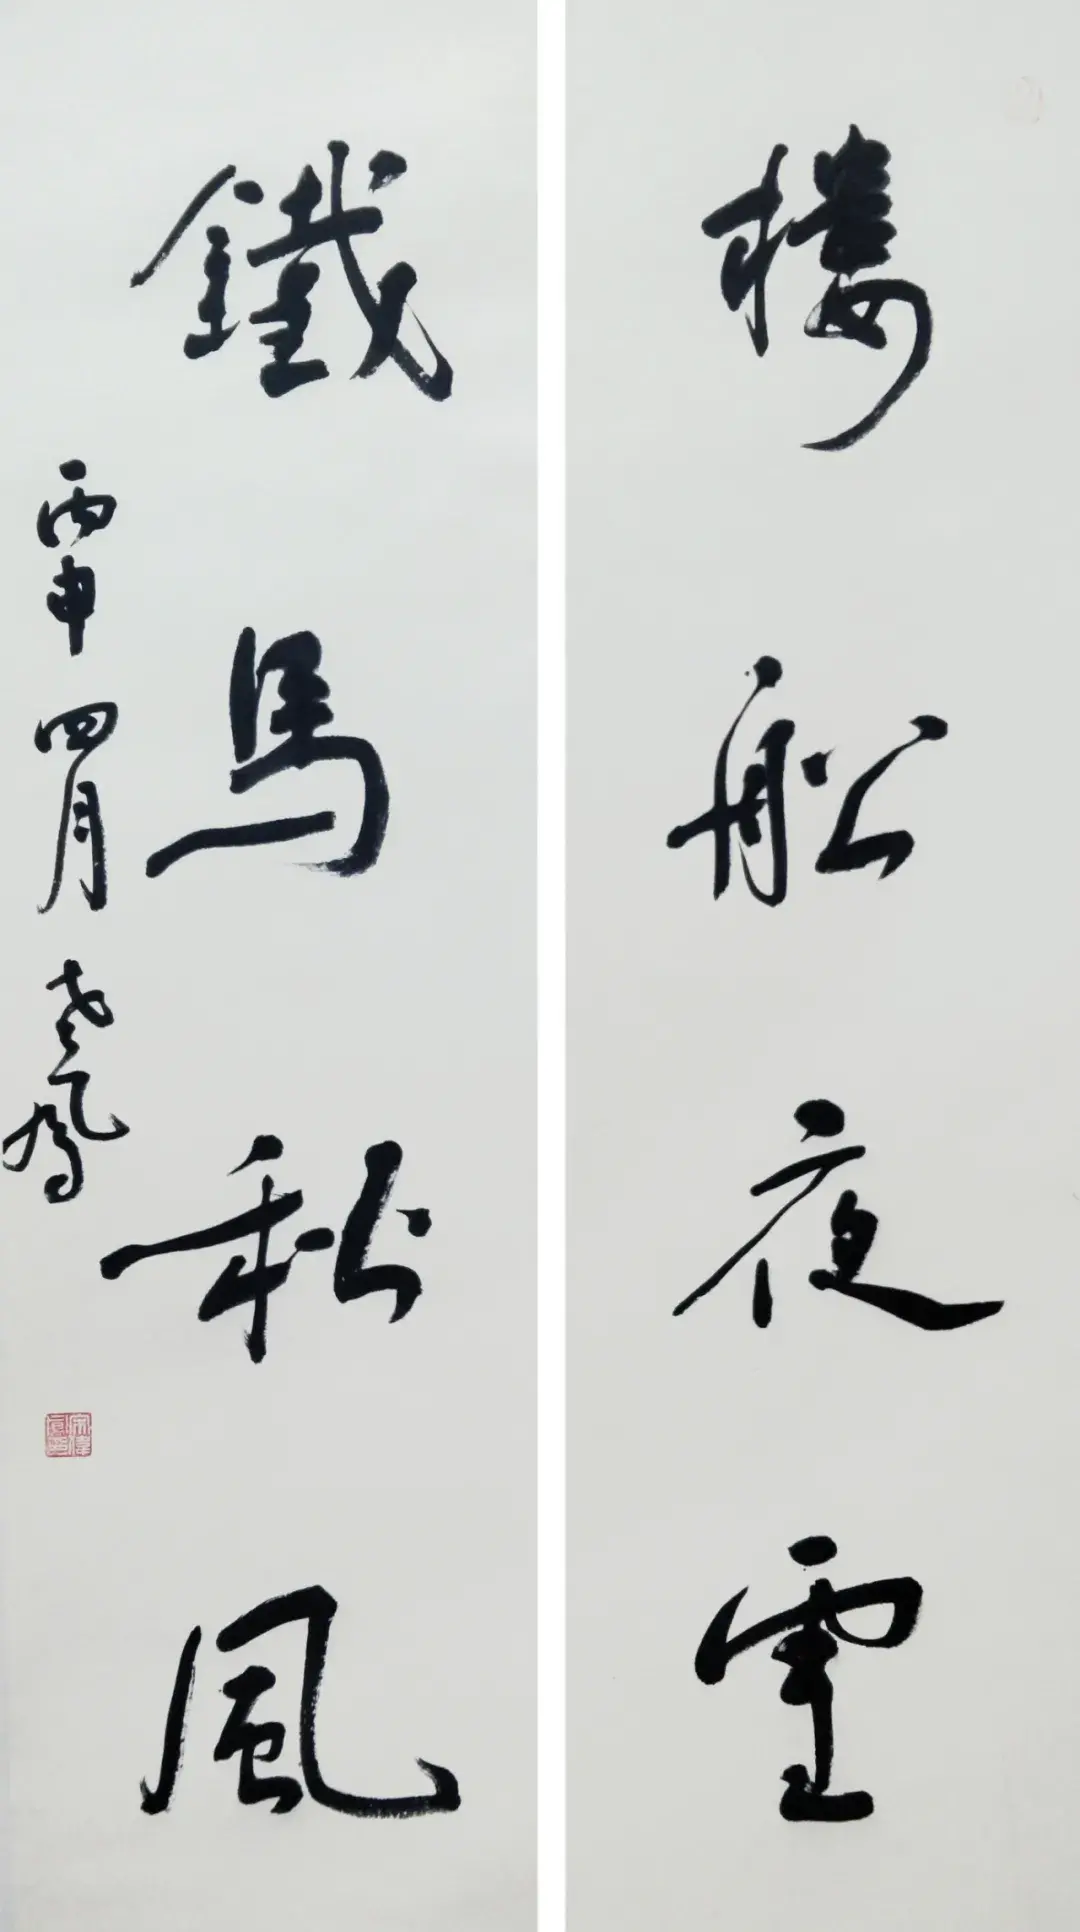 樓船夜雪
鐵馬秋風
丙申四月老鳳